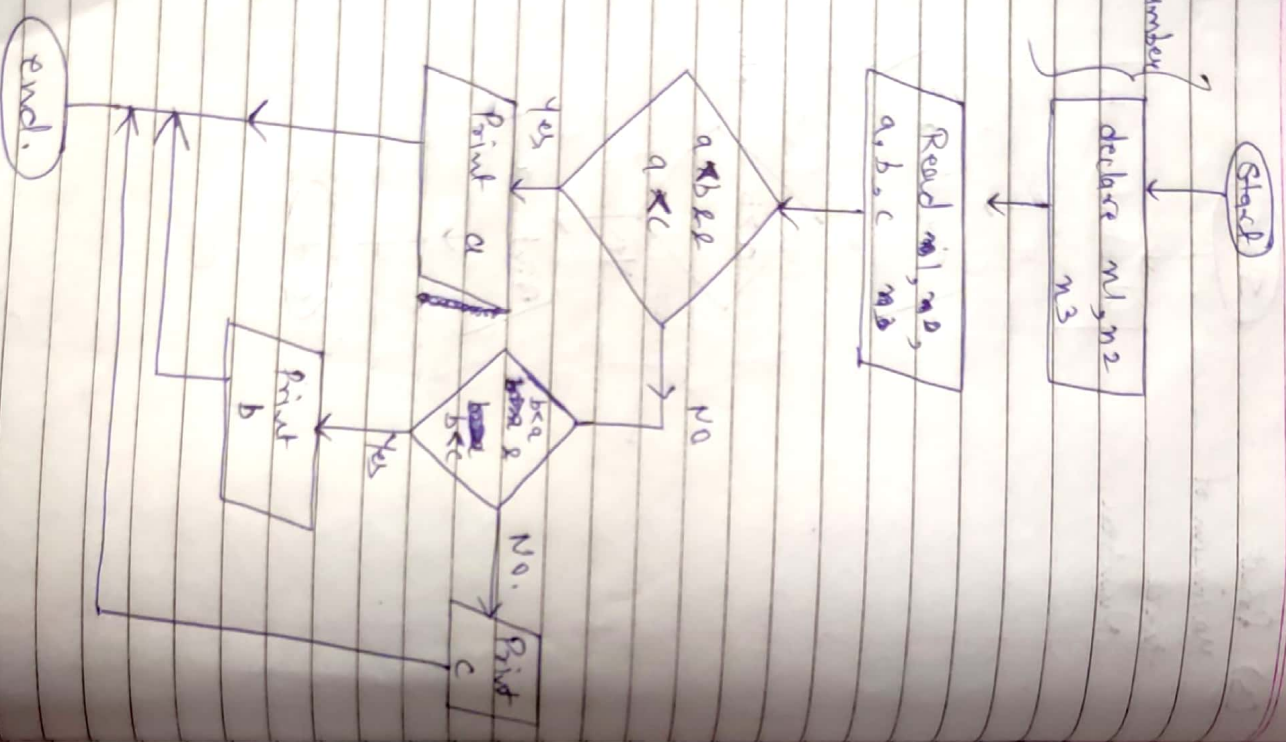 Start
declare n1, n2
n3
Read n1, n2,
a, b, c n3
a<b &&
a<c
Yes
NO
Print a
b<a
&
b<c
Yes
No.
Print
b
Print
c
end.